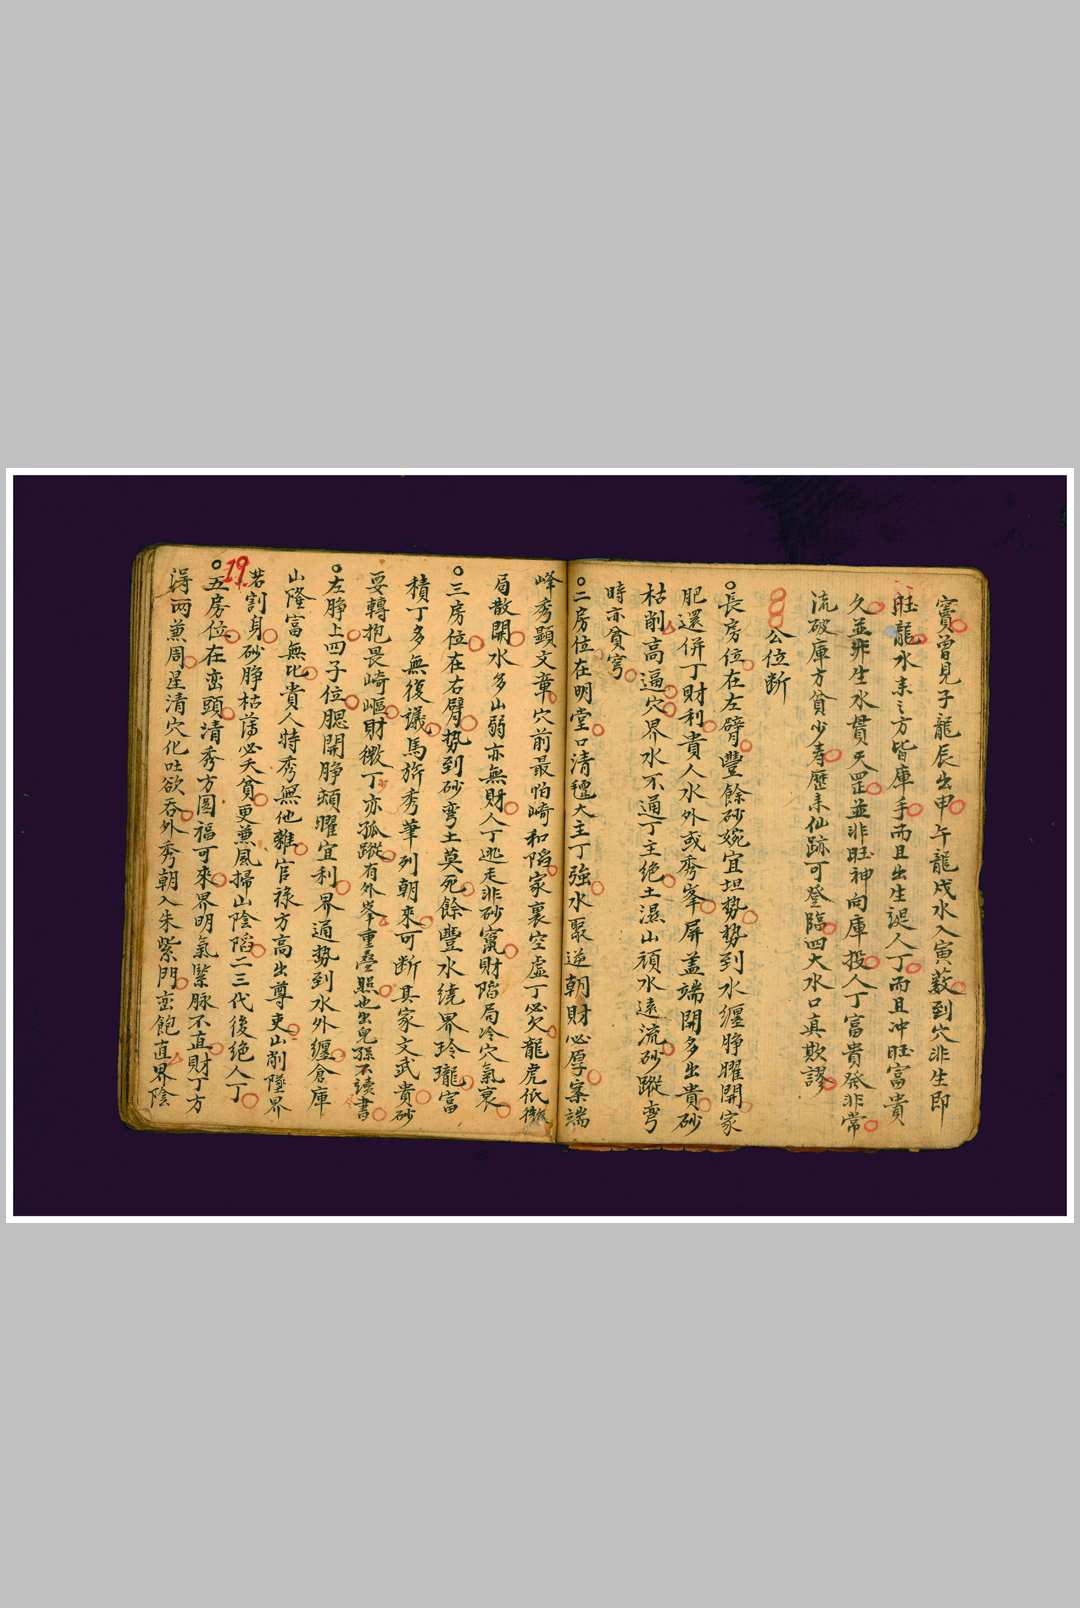 竇曾見子龍辰出申午龍戌水入寅藪到穴非生即
旺龍水未之方皆庫手而且出生誕人丁而且冲旺富貴
久並非生水貫天罡並非旺神向庫投人丁富貴發非常
流破庫方貧少壽歷未仙跡可登臨四大水口真欺謬
公位断
長房位在左臂豐餘砂婉宜坦勢勢到水纏睁曜開家
肥還併丁財利貴人水外或秀峯屏盖端開多出貴砂
枯削高逼穴界水不通丁主绝土濕山頑水遠流砂蹤弯
時亦貧窮
二房位在明堂口清穩大主丁強水聚逆朝財必厚案端
峰秀顯文章穴前最怕崎和陷家裏空虛丁必欠龍虎低微
局散開水多山弱亦無財人丁逃走非砂竄財陷局冷穴氣衰
三房位在右臂勢到砂弯土莫死餘豐水绕界玲瓏富
積丁多無後議馬旂秀華列朝來可断其家文武貴砂
要轉抱畏崎嶇財微丁亦孤蹤有外峯重疊照也出兒孫不讀書
左睁上四子位腮開睁䫌曜宜利界通勢到水外纏倉庫
山隆富無比貴人特秀無他雜官禄方高出尊吏山削墜界
若割身砂睁枯蕩必夭貧更兼風掃山陰陷二三代後绝人丁
19
五房位在峦頭清秀方圓福可來界明氣緊脉不直財丁方
淂两兼周星清穴化吐欲吞外秀朝入朱紫門峦飽直界陰